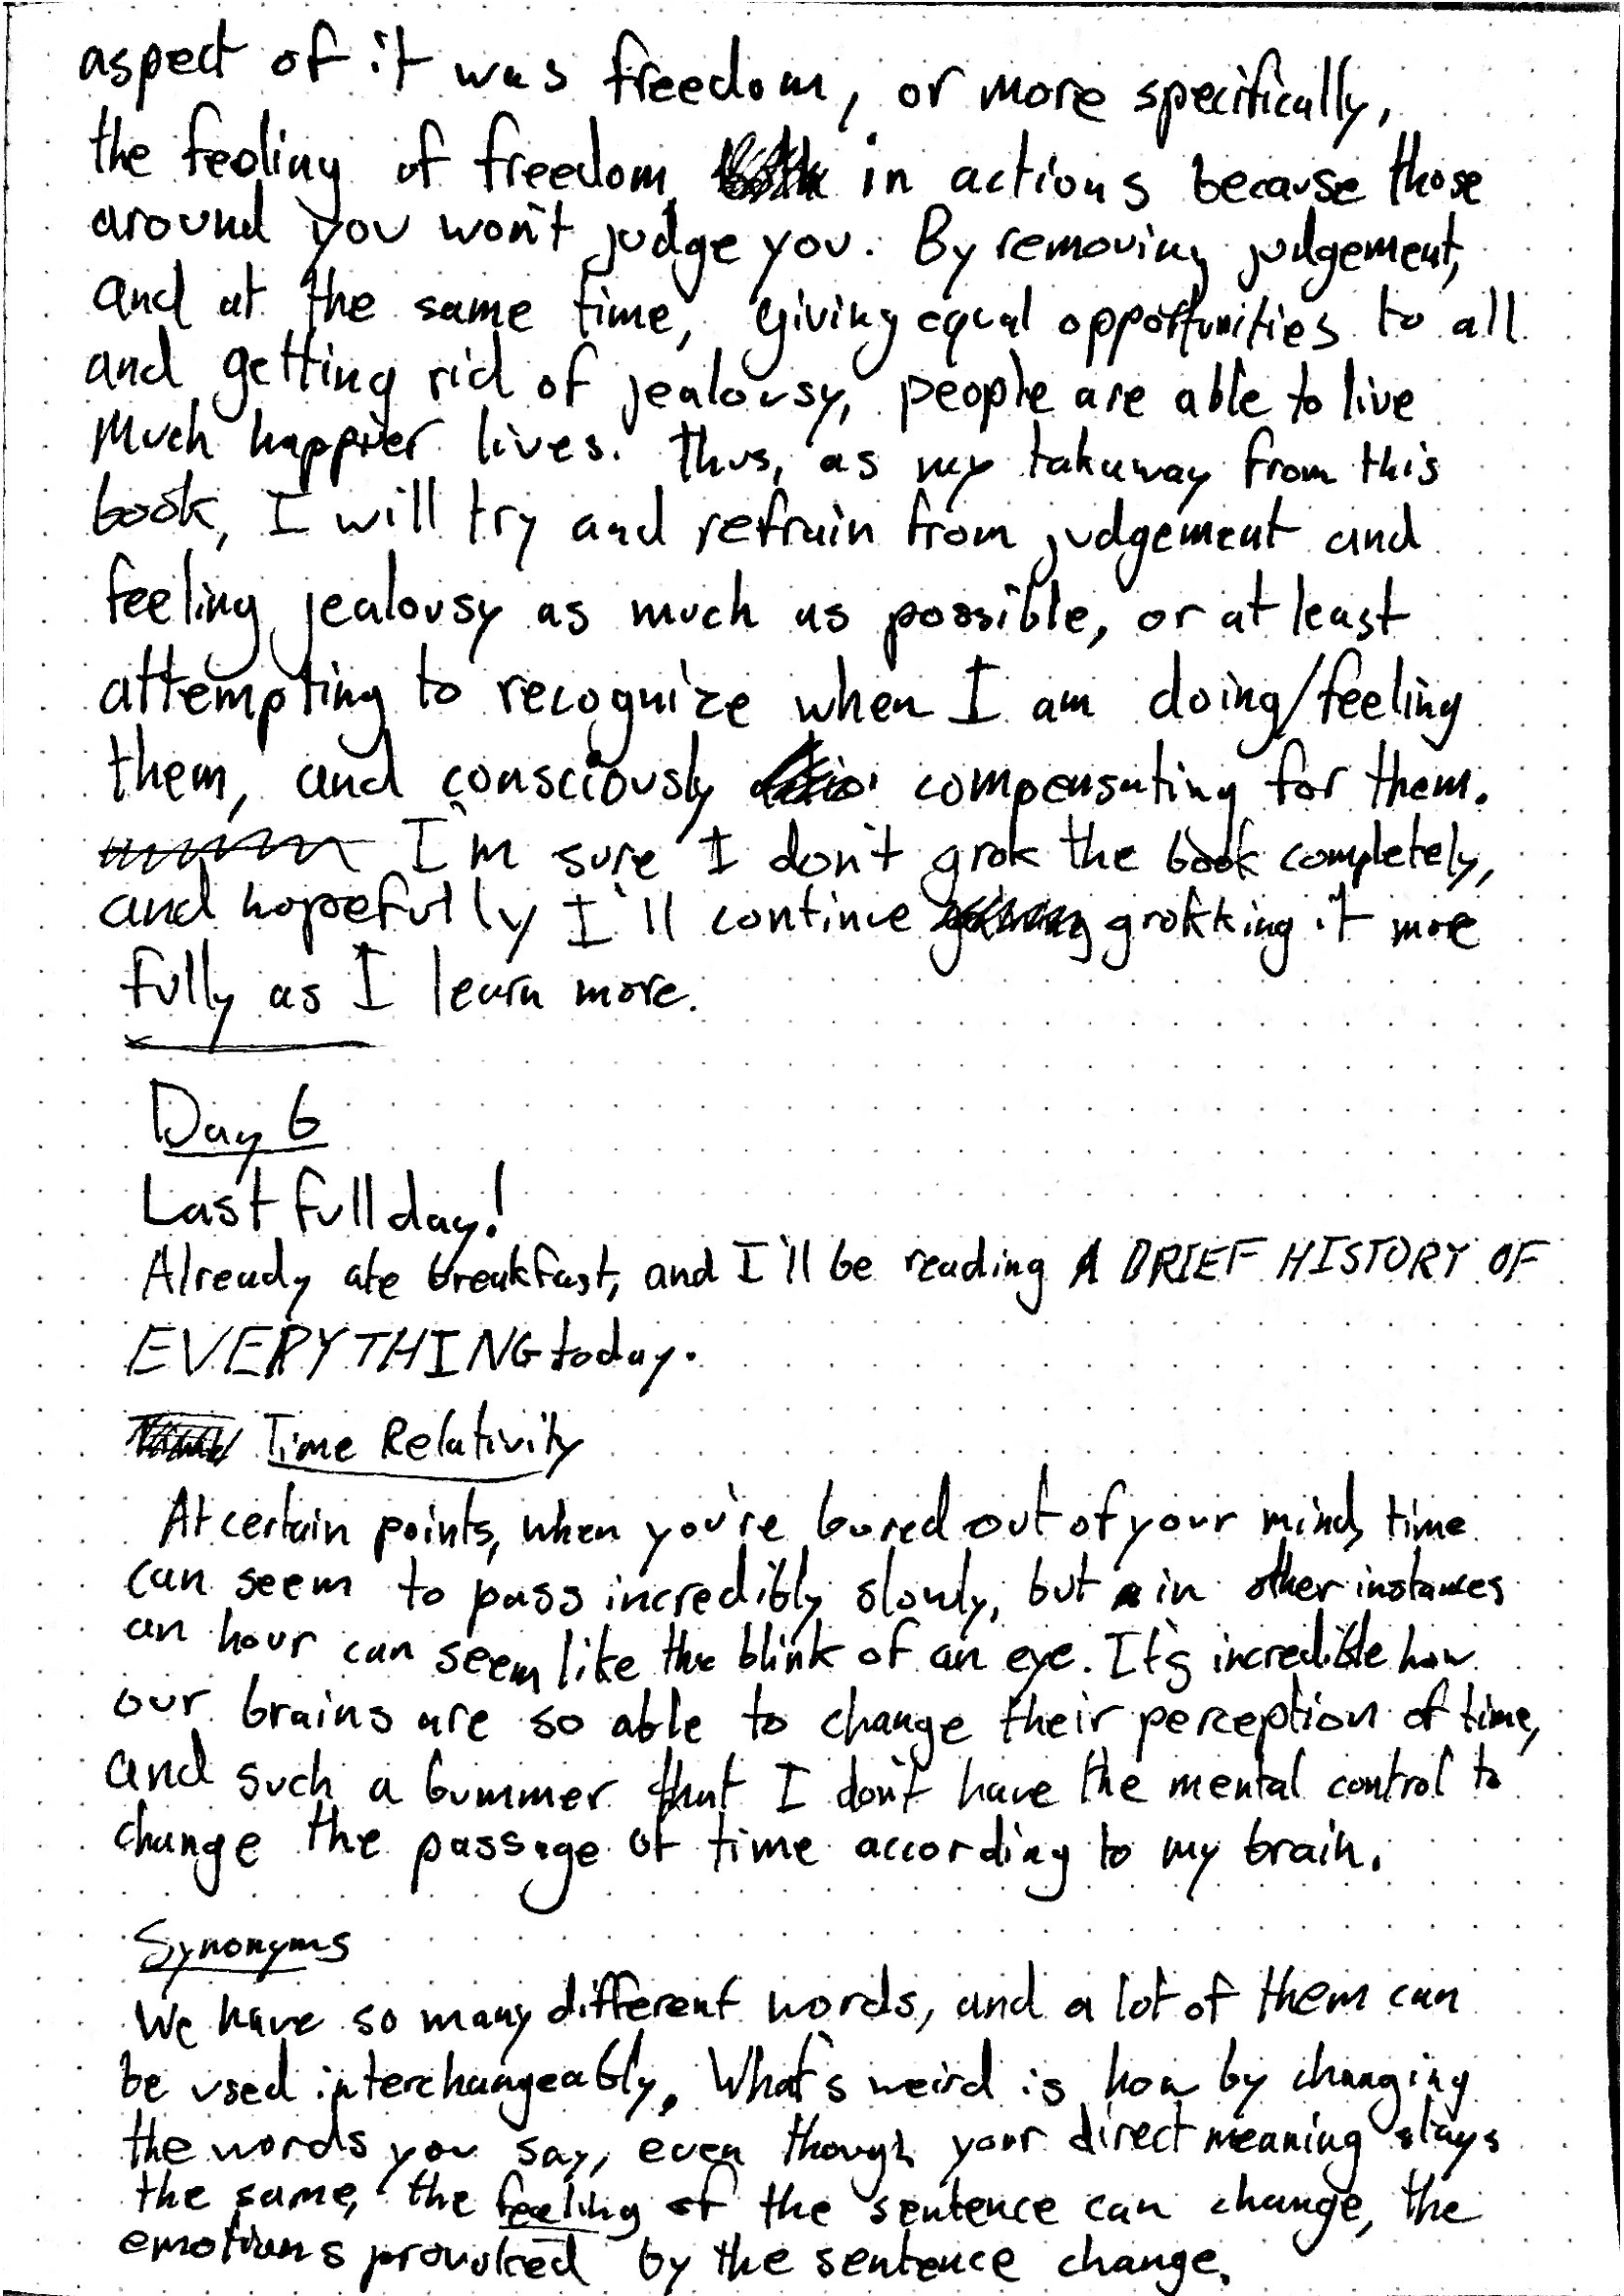 aspect of it was freedom, or more specifically,
the feeling of freedom, in actions because those
around you won't judge you. By removing judgement,
and at the same time, giving equal opportunities to all
and getting rid of jealousy, people are able to live
much happier lives. Thus, as my takaway from this
book, I will try and refrain from judgement and
feeling jealousy as much as possible, or at least
attempting to recognize when I am doing/feeling
them, and consciously compensating for them.
I'm sure I don't grok the book completely,
and hopefully I'll continue grokking it more
fully as I learn more.
Day 6
Last full day!
Already ate breakfast, and I'll be reading A BRIEF HISTORY OF
EVERYTHING today.
Time Relativity
At certain points, when you're bored out of your mind, time
can seem to pass incredibly slowly, but in other instances
an hour can seem like the blink of an eye. It's incredible how
our brains are so able to change their perception of time,
and such a bummer that I don't have the mental control to
change the passage of time according to my brain.
Synonyms
We have so many different words, and a lot of them can
be used interchangeably. What's weird is how by changing
the words you say, even though your direct meaning stays
the same, the feeling of the sentence can change, the
emotions provoked by the sentence change.